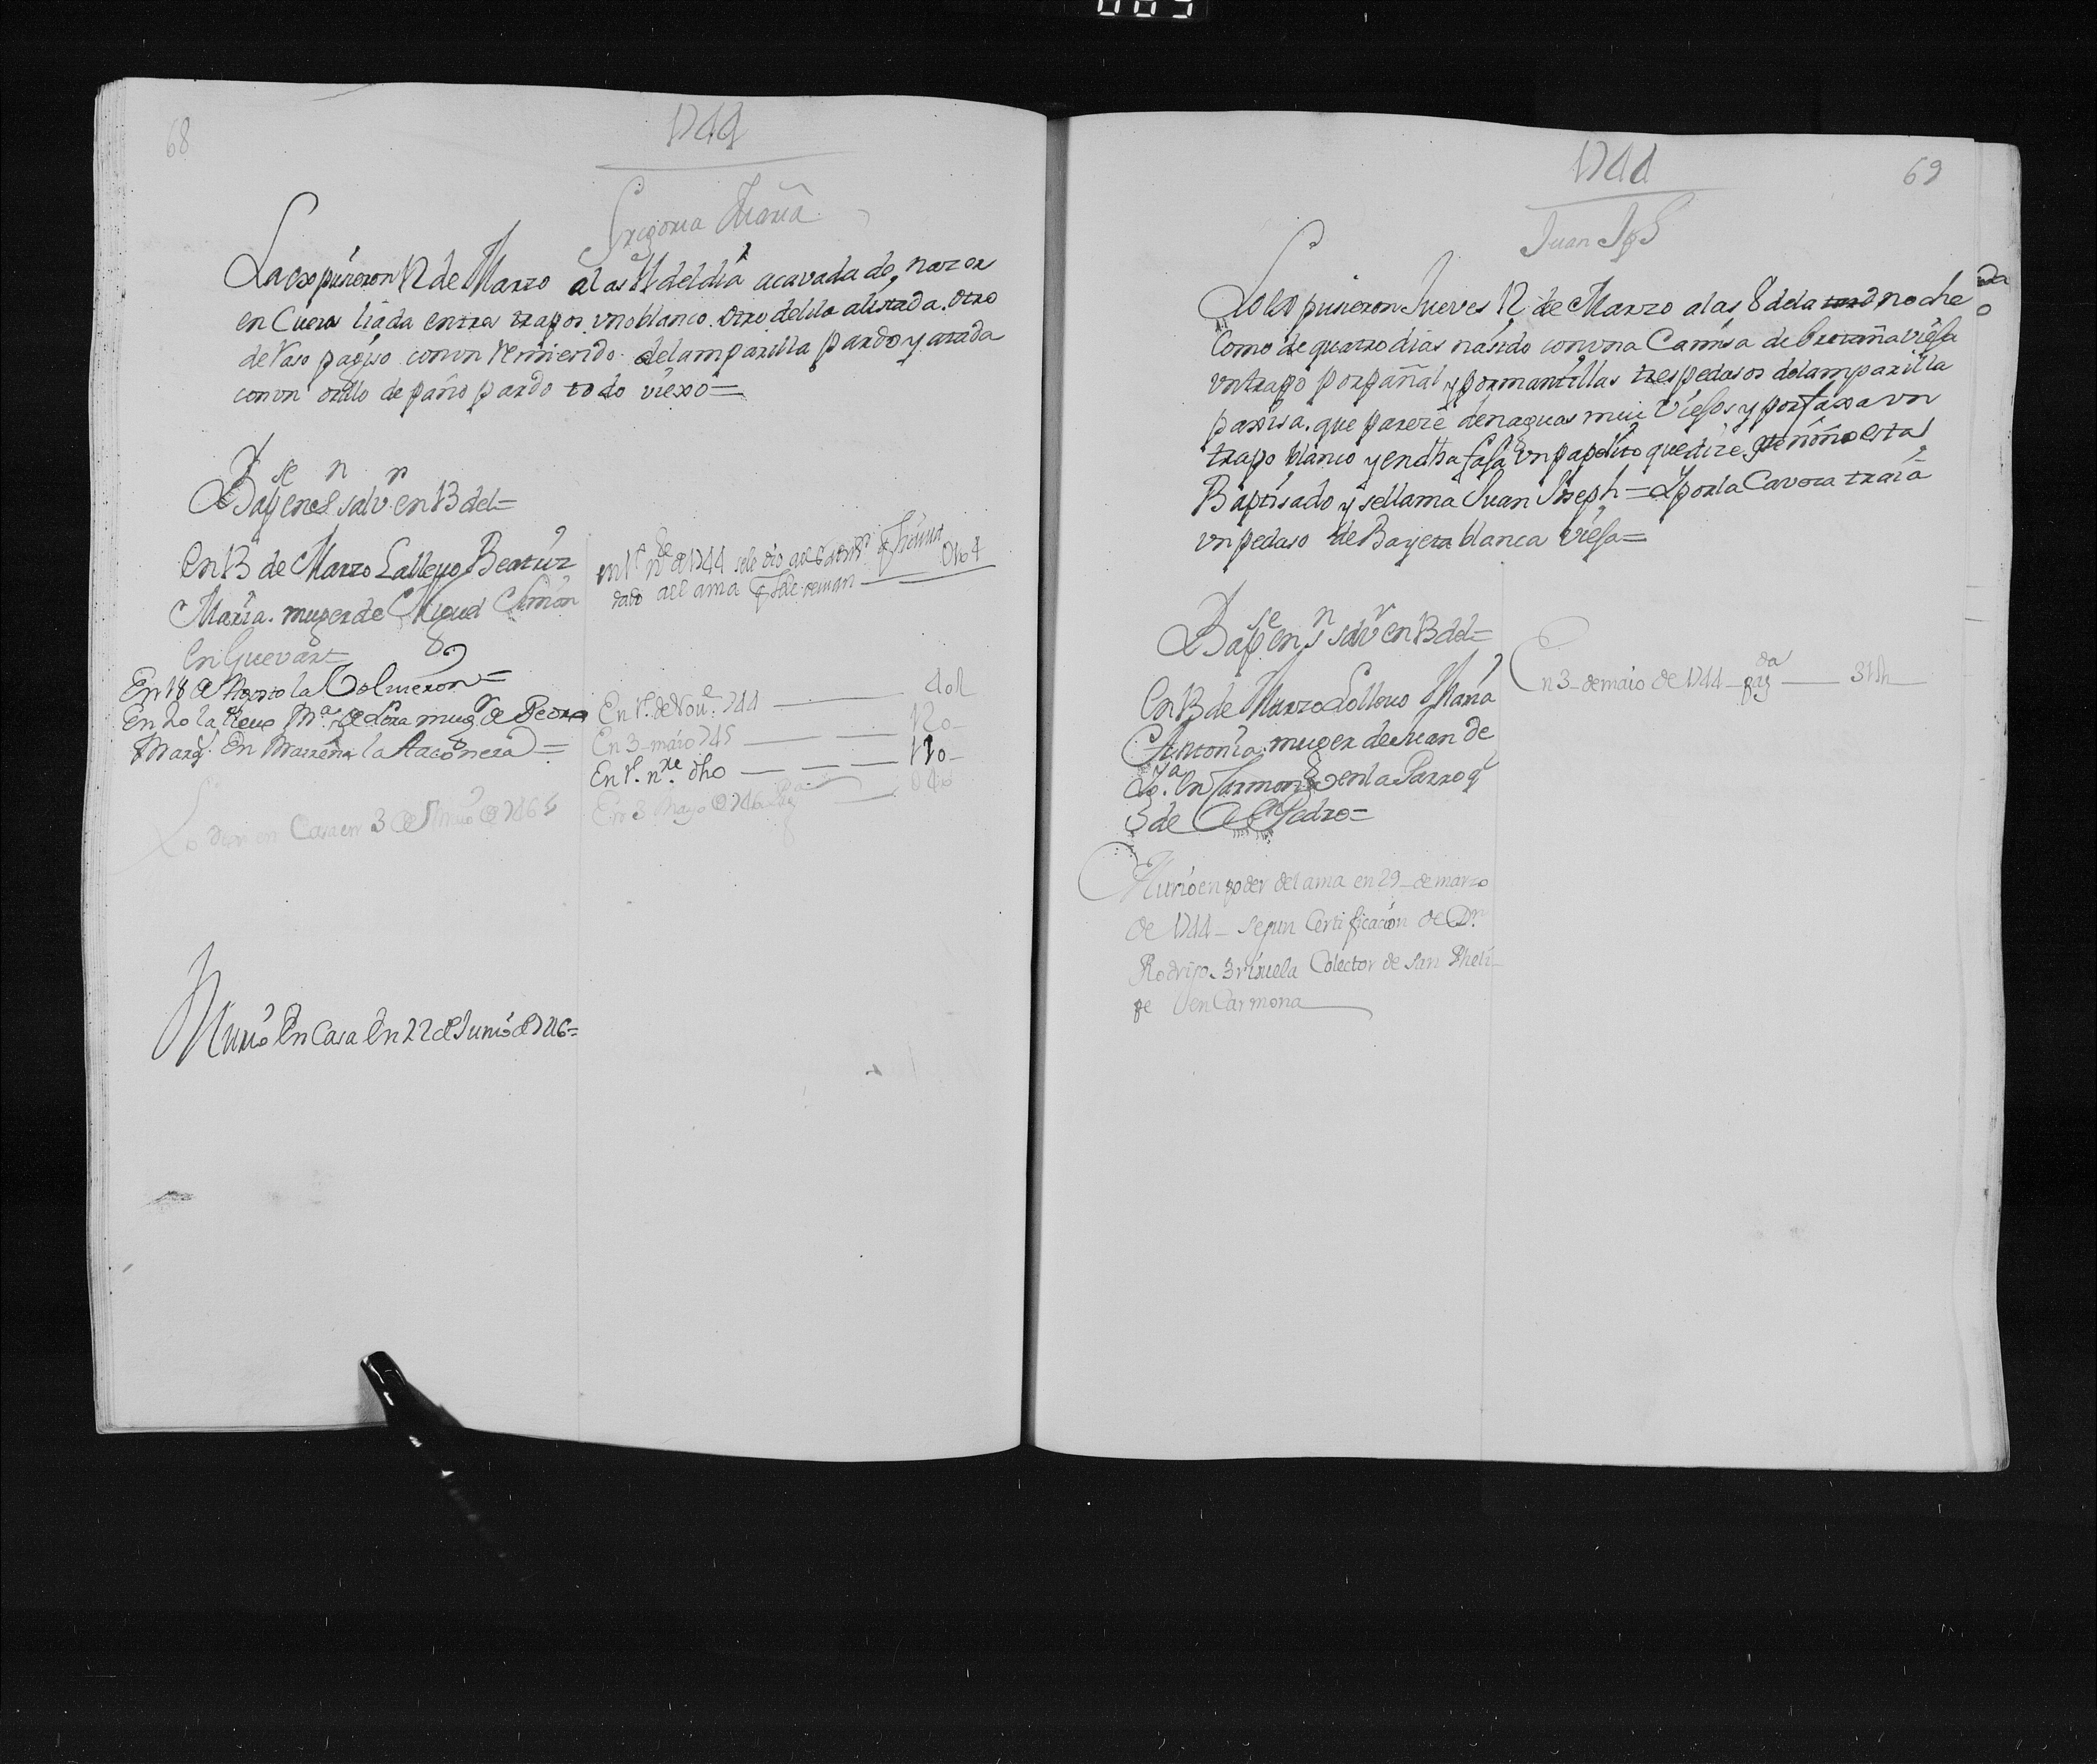 009
68
1744
Gregoria Maria
La expusieron 12 de Marzo a las 11 del dia acavada de nazer
en Cueros liada entres trapos. vno blanco. otro de lila alistada. otro
de Raso pagiso con vn Remiendo de lamparilla pardo y atada
con vn orillo de paño pardo todo viexo=
Bapse en Sn Salvr en 13 del=
en 13 de Marzo La llevo Beatriz
Maria. muger de Miguel Simon
en
En 18 Agosto la Volvieron=
En 20 la llevo Ma de Lora mugr de Pedro
Marq. En Mairena la Taconera=
en Casa en 3 de Junio de 746
en 1º de 1744 se le dio
dado al ama
0164
En 1º de Nove. 744 — 401
En 3 maio 745 — 120
En 1º nre dho — 120
En 3 Mayo de 746 — 046
Murio En Casa En 22 de Junio de 746=
1744
69
Juan Jph
Lo expusieron Jueves 12 de Marzo a las 8 de la noche
Como de quatro dias nasido con vna Camisa de bretaña viesa
vn trapo por pañal y por mantillas tres pedasos de lamparilla
parisa. que pareze de naguas mui viesos y por faxa vn
trapo blanco y en dha fasa vn papelito que dize. este niño esta
Baptisado y se llama Juan Joseph = Y por la Cavesa traia
vn pedaso de Bayeta blanca viesa=
Bapse en Sn Salvr en 13 del=
En 13 de Marzo Lo llevo Maria
Antonia. muger de Juan de
en Carmona en la Parroqa
de Sn Pedro=
En 3 de maio de 1744 — pagda — 31
Murio en poder del ama en 29 de marzo
de 1744 — segun Certificacion de Dn
Rodrigo Brisuela Colector de San Pheli-
pe en Carmona